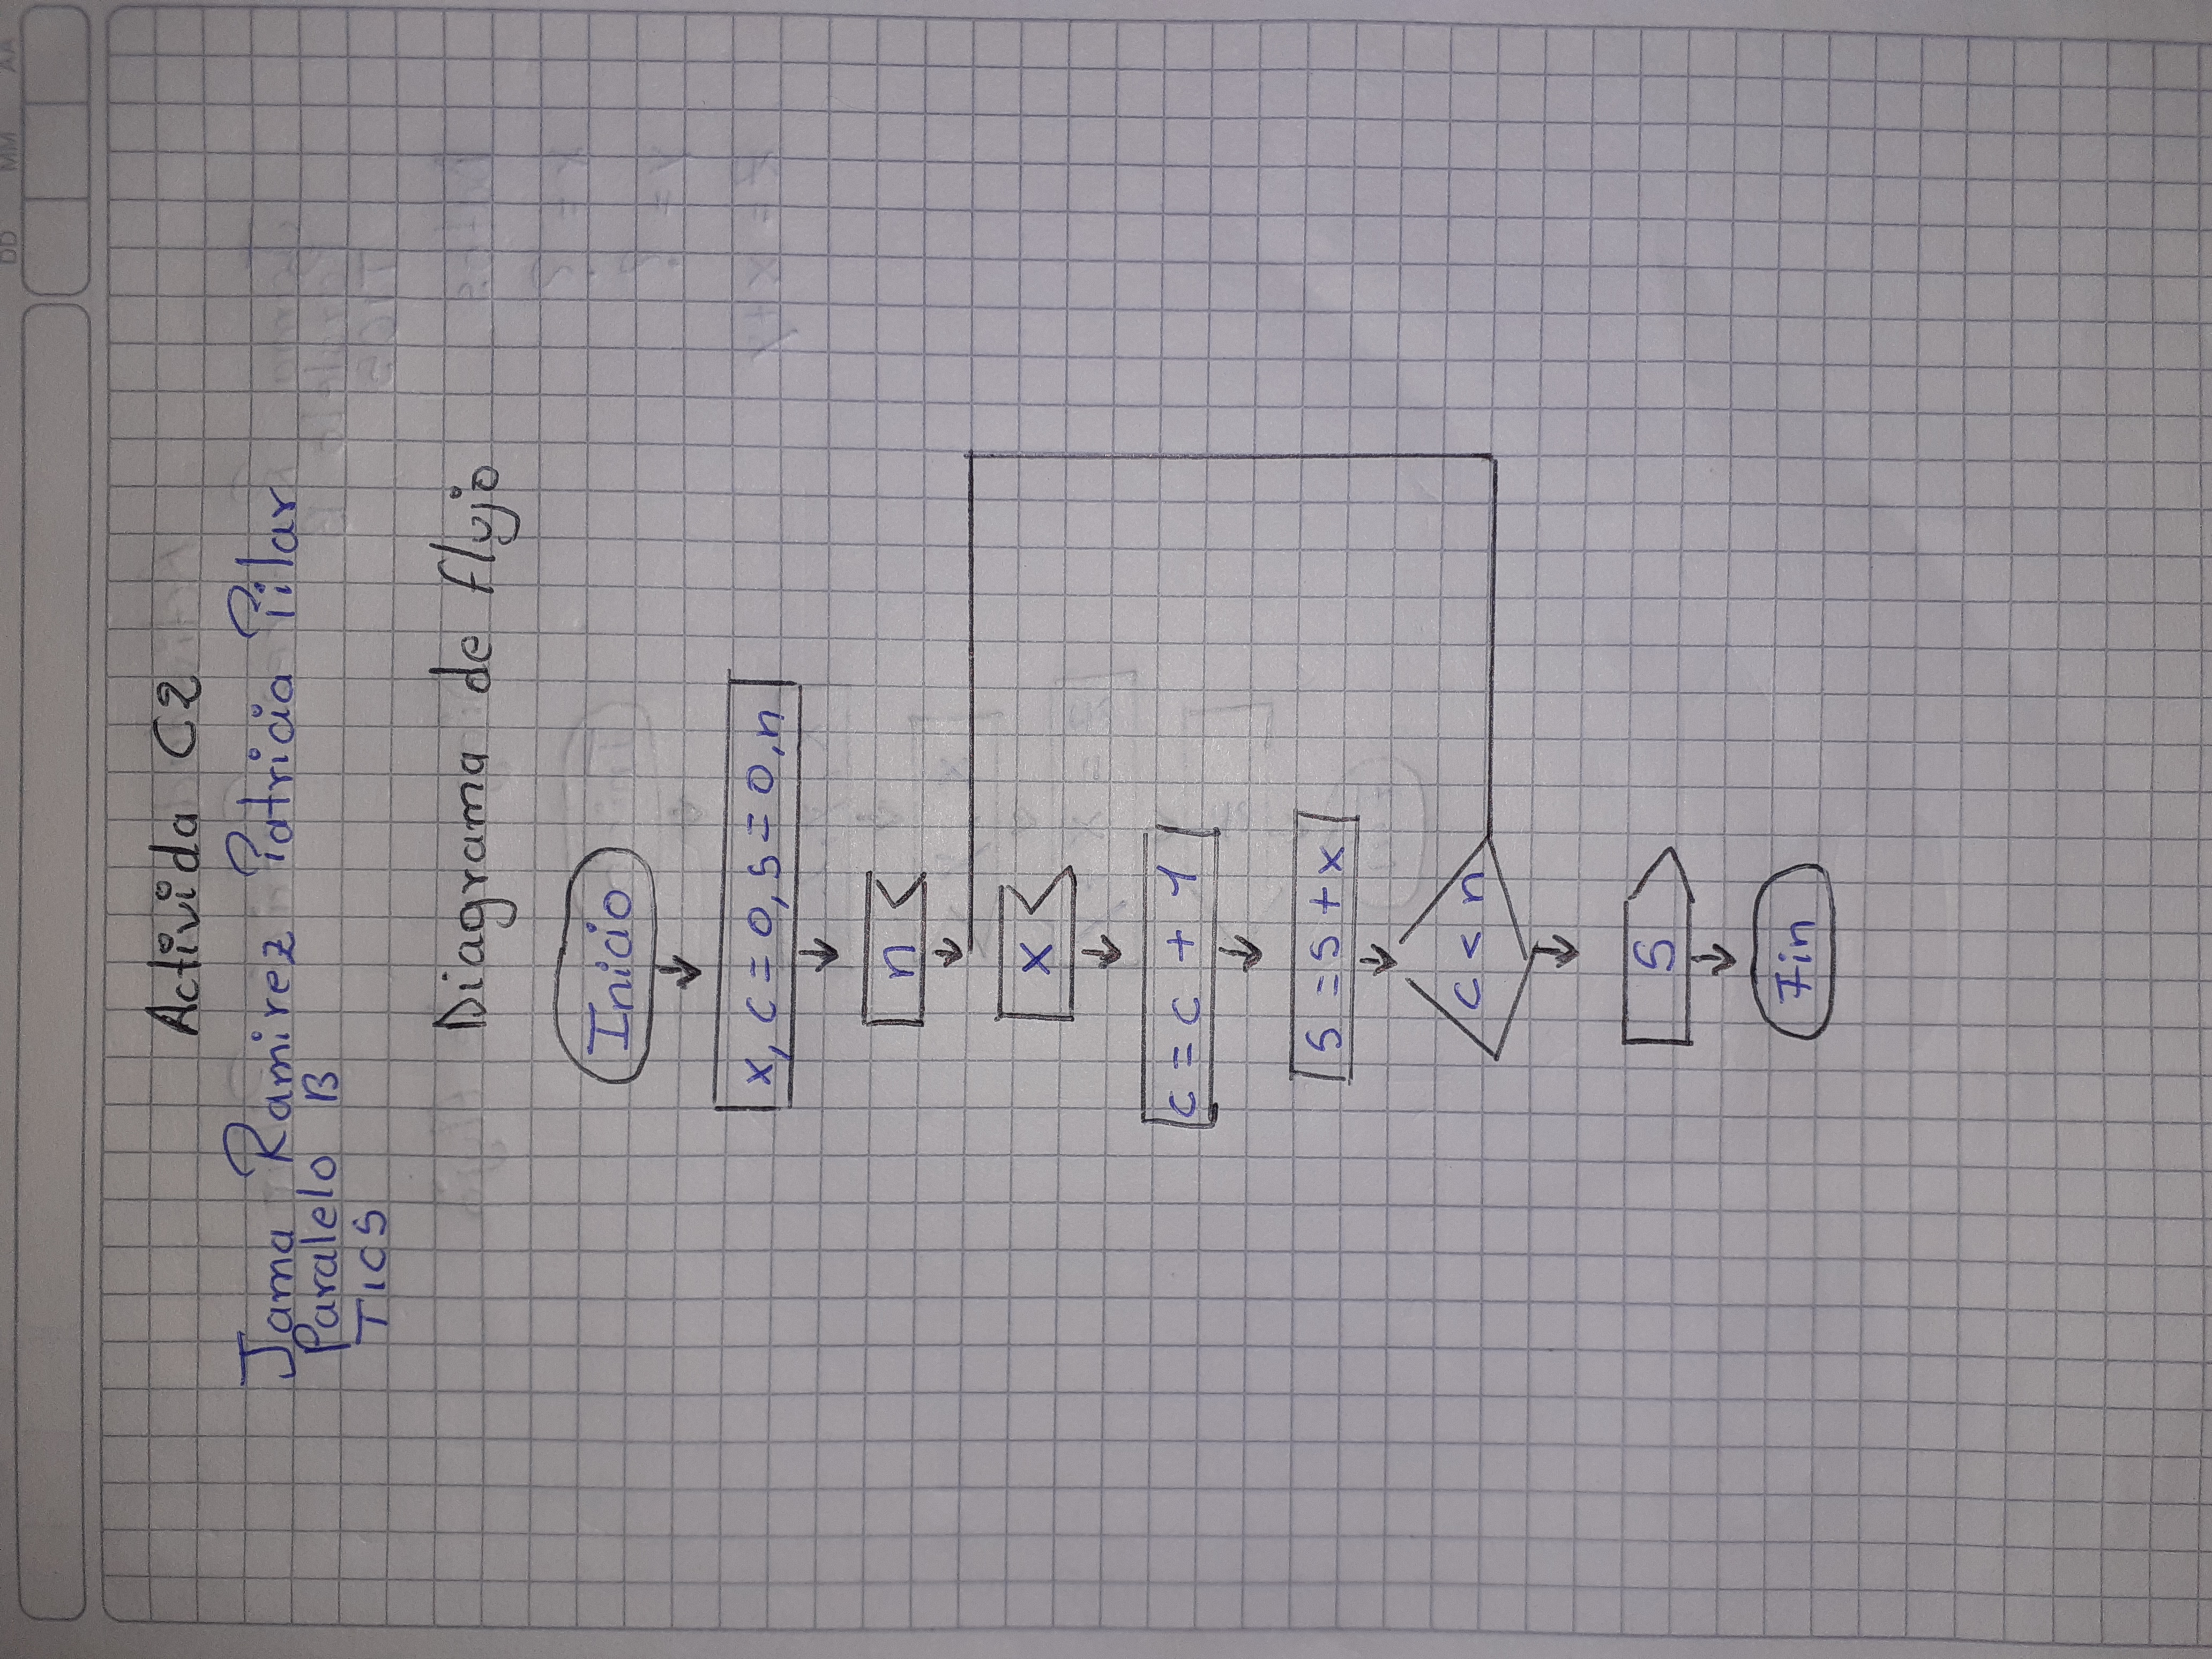 DD MM AA
Activida C2
Jama Ramirez Patricia Pilar
Paralelo B
TICS
Diagrama de flujo
Inicio
x, c = 0, s = 0, n
n
x
c = c + 1
s = s + x
c < n
S
Fin